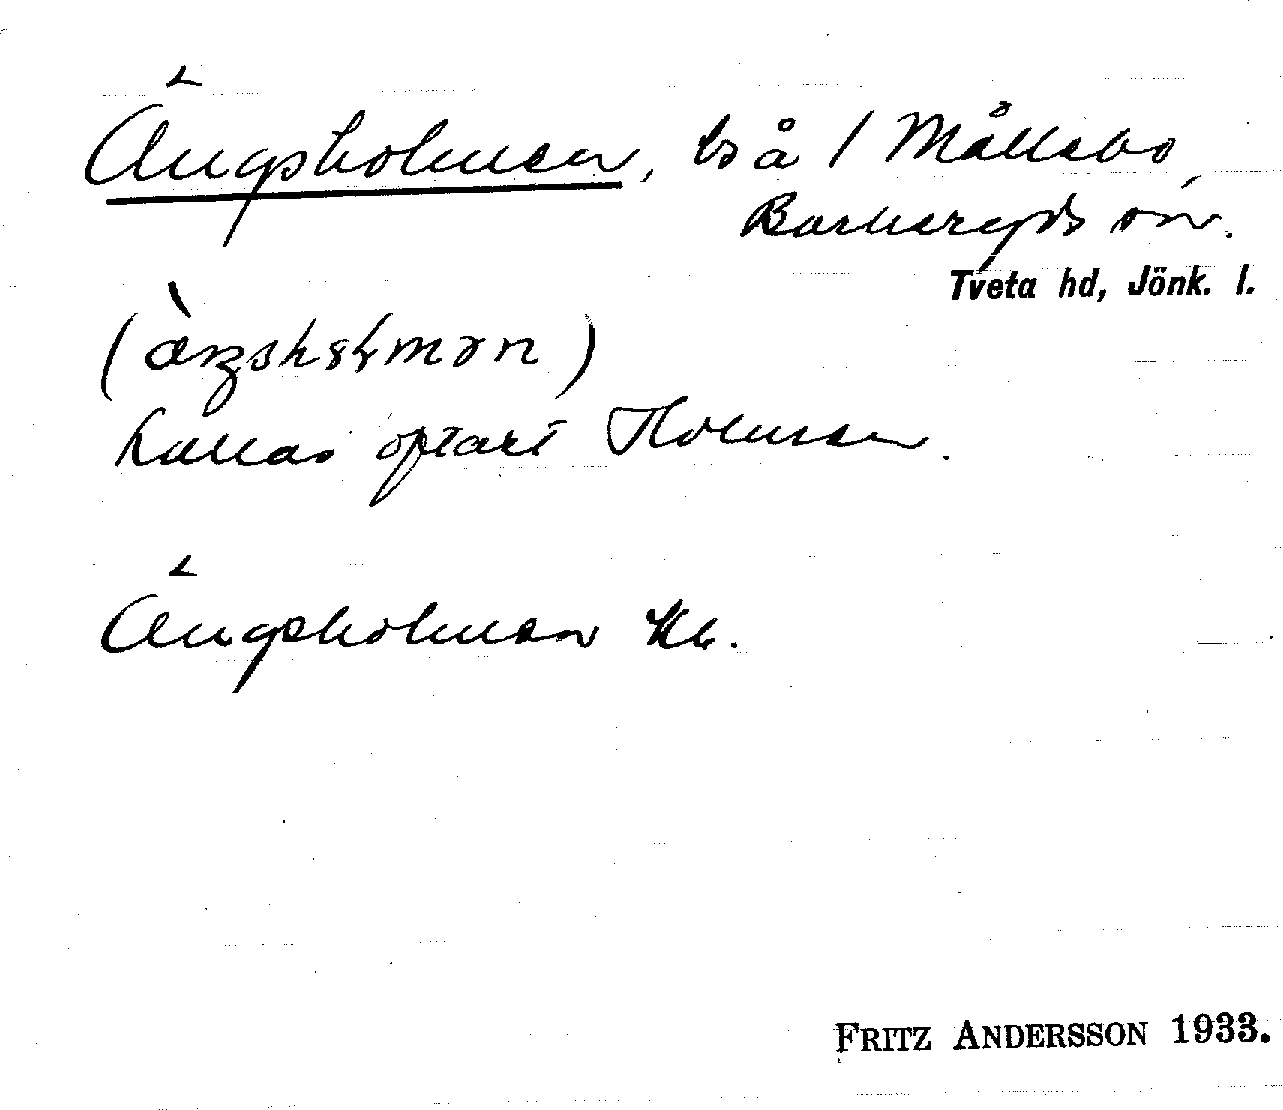 Ängsholmen, bs å / Mållebo,
Barkeryds sn.
Tveta hd, Jönk. l.
kallas oftast Holmen.
Ängsholmen Kb.
FRITZ ANDERSSON 1933.